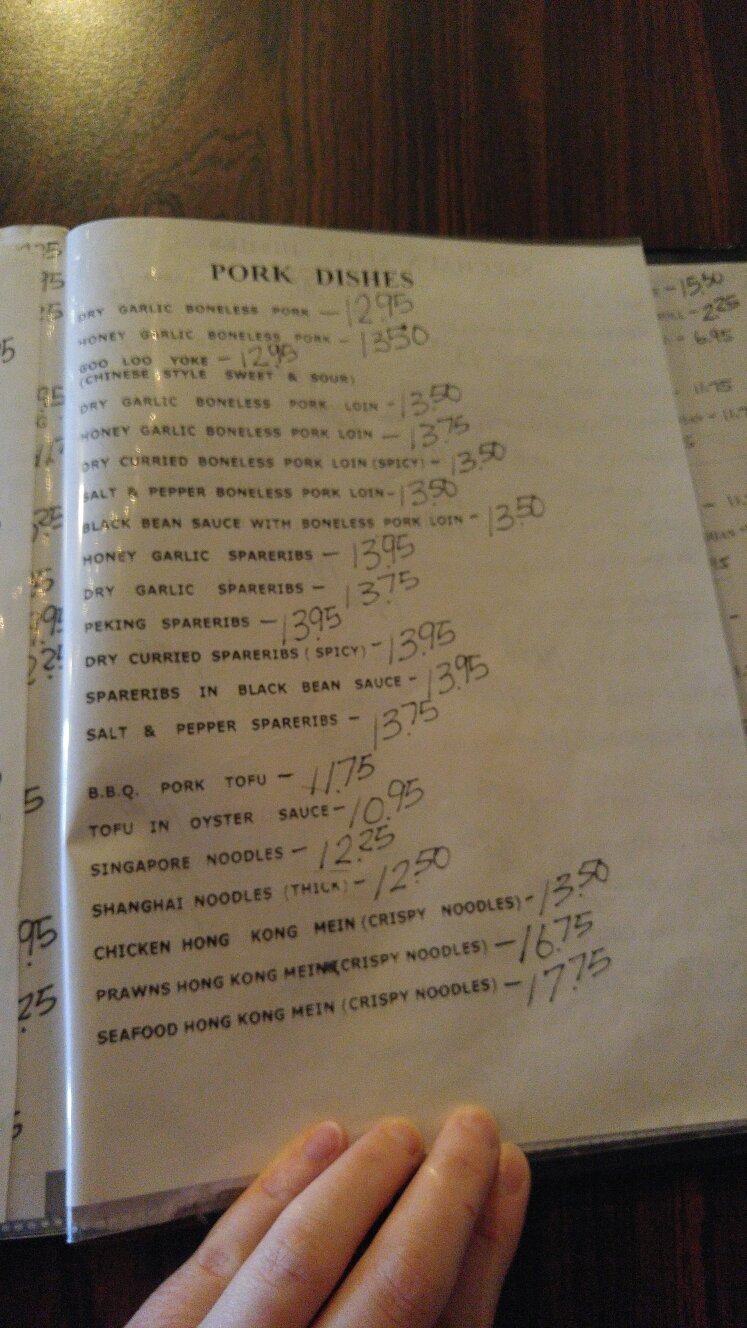 PORK DISHES
DRY GARLIC BONELESS PORK — 12.95
HONEY GARLIC BONELESS PORK - 13.50
GOO LOO YOKE - 12.95
(CHINESE STYLE SWEET & SOUR)
DRY GARLIC BONELESS PORK LOIN - 13.50
HONEY GARLIC BONELESS PORK LOIN — 13.75
DRY CURRIED BONELESS PORK LOIN (SPICY) - 13.50
SALT & PEPPER BONELESS PORK LOIN - 13.50
BLACK BEAN SAUCE WITH BONELESS PORK LOIN - 13.50
HONEY GARLIC SPARERIBS — 13.95
DRY GARLIC SPARERIBS — 13.75
PEKING SPARERIBS — 13.95
DRY CURRIED SPARERIBS (SPICY) - 13.95
SPARERIBS IN BLACK BEAN SAUCE - 13.95
SALT & PEPPER SPARERIBS — 13.75
B.B.Q. PORK TOFU — 11.75
TOFU IN OYSTER SAUCE — 10.95
SINGAPORE NOODLES — 12.25
SHANGHAI NOODLES (THICK) — 12.50
CHICKEN HONG KONG MEIN (CRISPY NOODLES) - 13.50
PRAWNS HONG KONG MEIN (CRISPY NOODLES) — 16.75
SEAFOOD HONG KONG MEIN (CRISPY NOODLES) — 17.75
- 15.50
- 2.25
- 6.95
11.75